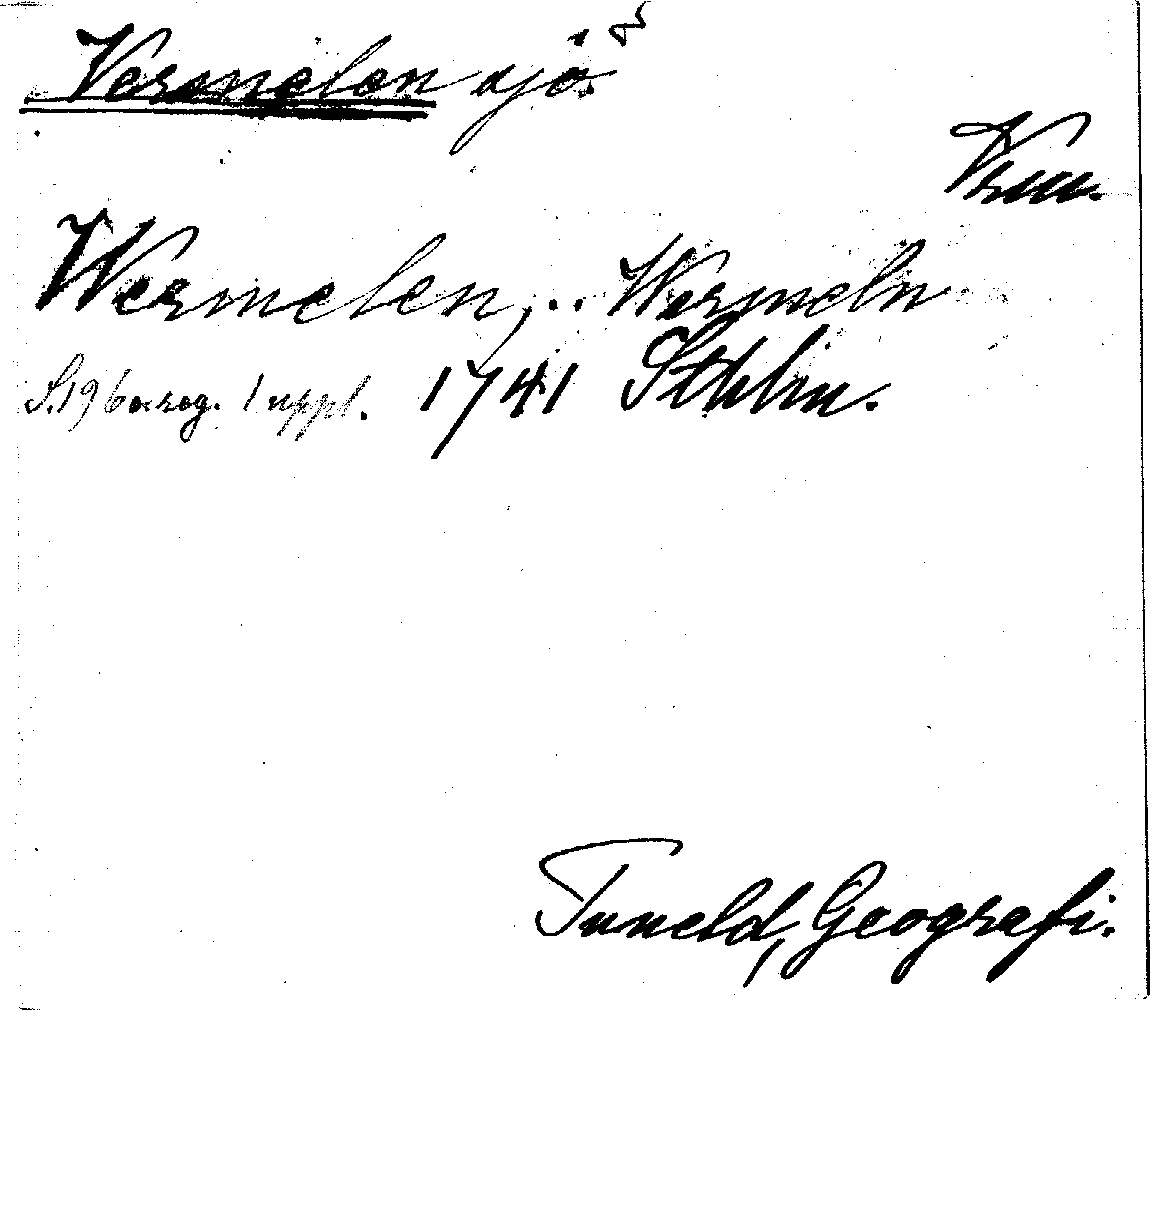 Vermelen sjö.
Vrm.
Wermelen, .. Wermeln
S. 196 1 uppl. 1741 Sthlm.
Tuneld, Geografi.